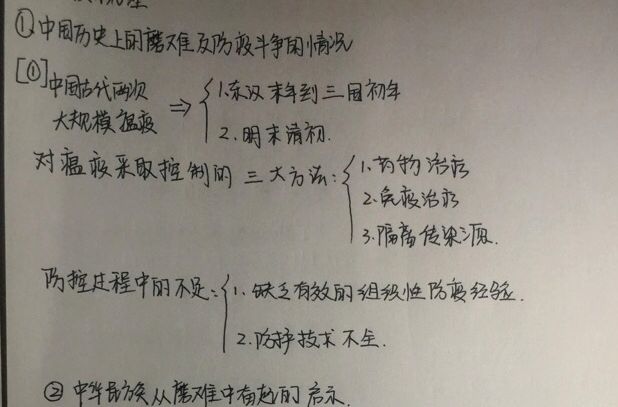 ①中国历史上的磨难及防疫斗争的情况
[①]中国古代两次
大规模瘟疫 ⇒ { 1.东汉末年到三国初年
2.明末清初.
对瘟疫采取控制的三大方法: { 1.药物治疗
2.免疫治疗
3.隔离传染源.
防控过程中的不足: { 1.缺乏有效的组织性防疫经验.
2.防护技术不全.
② 中华民族从磨难中奋起的启示.